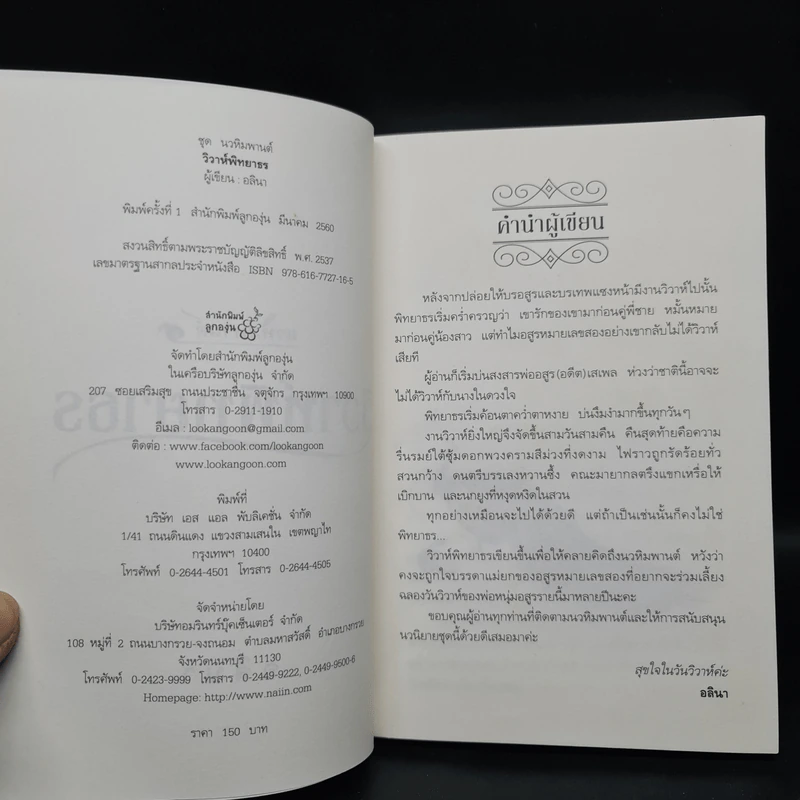 ชุด นวหิมพานต์
วิวาห์พิทยาธร
ผู้เขียน : อลินา
พิมพ์ครั้งที่ 1 สำนักพิมพ์ลูกองุ่น มีนาคม 2560
สงวนสิทธิ์ตามพระราชบัญญัติลิขสิทธิ์ พ.ศ. 2537
เลขมาตรฐานสากลประจำหนังสือ ISBN 978-616-7727-16-5
สำนักพิมพ์
ลูกองุ่น
จัดทำโดยสำนักพิมพ์ลูกองุ่น
ในเครือบริษัทลูกองุ่น จำกัด
207 ซอยเสริมสุข ถนนประชาชื่น จตุจักร กรุงเทพฯ 10900
โทรสาร 0-2911-1910
อีเมล : lookangoon@gmail.com
ติดต่อ : www.facebook.com/lookangoon
www.lookangoon.com
พิมพ์ที่
บริษัท เอส แอล พับลิเคชั่น จำกัด
1/41 ถนนดินแดง แขวงสามเสนใน เขตพญาไท
กรุงเทพฯ 10400
โทรศัพท์ 0-2644-4501 โทรสาร 0-2644-4505
จัดจำหน่ายโดย
บริษัทอมรินทร์บุ๊คเซ็นเตอร์ จำกัด
108 หมู่ที่ 2 ถนนบางกรวย-จงถนอม ตำบลมหาสวัสดิ์ อำเภอบางกรวย
จังหวัดนนทบุรี 11130
โทรศัพท์ 0-2423-9999 โทรสาร 0-2449-9222, 0-2449-9500-6
Homepage: http://www.naiin.com
ราคา 150 บาท
คำนำผู้เขียน
หลังจากปล่อยให้บรอสูรและบรเทพแซงหน้ามีงานวิวาห์ไปนั้น
พิทยาธรเริ่มคร่ำครวญว่า เขารักของเขามาก่อนคู่พี่ชาย หมั้นหมาย
มาก่อนคู่น้องสาว แต่ทำไมอสูรหมายเลขสองอย่างเขากลับไม่ได้วิวาห์
เสียที
ผู้อ่านก็เริ่มบ่นสงสารพ่ออสูร(อดีต)เสเพล ห่วงว่าชาตินี้อาจจะ
ไม่ได้วิวาห์กับนางในดวงใจ
พิทยาธรเริ่มค้อนตาคว่ำตาหงาย บ่นงึมงำมากขึ้นทุกวันๆ
งานวิวาห์ยิ่งใหญ่จึงจัดขึ้นสามวันสามคืน คืนสุดท้ายคือความ
รื่นรมย์ใต้ซุ้มดอกพวงครามสีม่วงที่งดงาม ไฟราวถูกรัดร้อยทั่ว
สวนกว้าง ดนตรีบรรเลงหวานซึ้ง คณะมายากลตรึงแขกเหรื่อให้
เบิกบาน และนกยูงที่หงุดหงิดในสวน
ทุกอย่างเหมือนจะไปได้ด้วยดี แต่ถ้าเป็นเช่นนั้นก็คงไม่ใช่
พิทยาธร...
วิวาห์พิทยาธรเขียนขึ้นเพื่อให้คลายคิดถึงนวหิมพานต์ หวังว่า
คงจะถูกใจบรรดาแม่ยกของอสูรหมายเลขสองที่อยากจะร่วมเลี้ยง
ฉลองวันวิวาห์ของพ่อหนุ่มอสูรรายนี้มาหลายปีนะคะ
ขอบคุณผู้อ่านทุกท่านที่ติดตามนวหิมพานต์และให้การสนับสนุน
นวนิยายชุดนี้ด้วยดีเสมอมาค่ะ
สุขใจในวันวิวาห์ค่ะ
อลินา